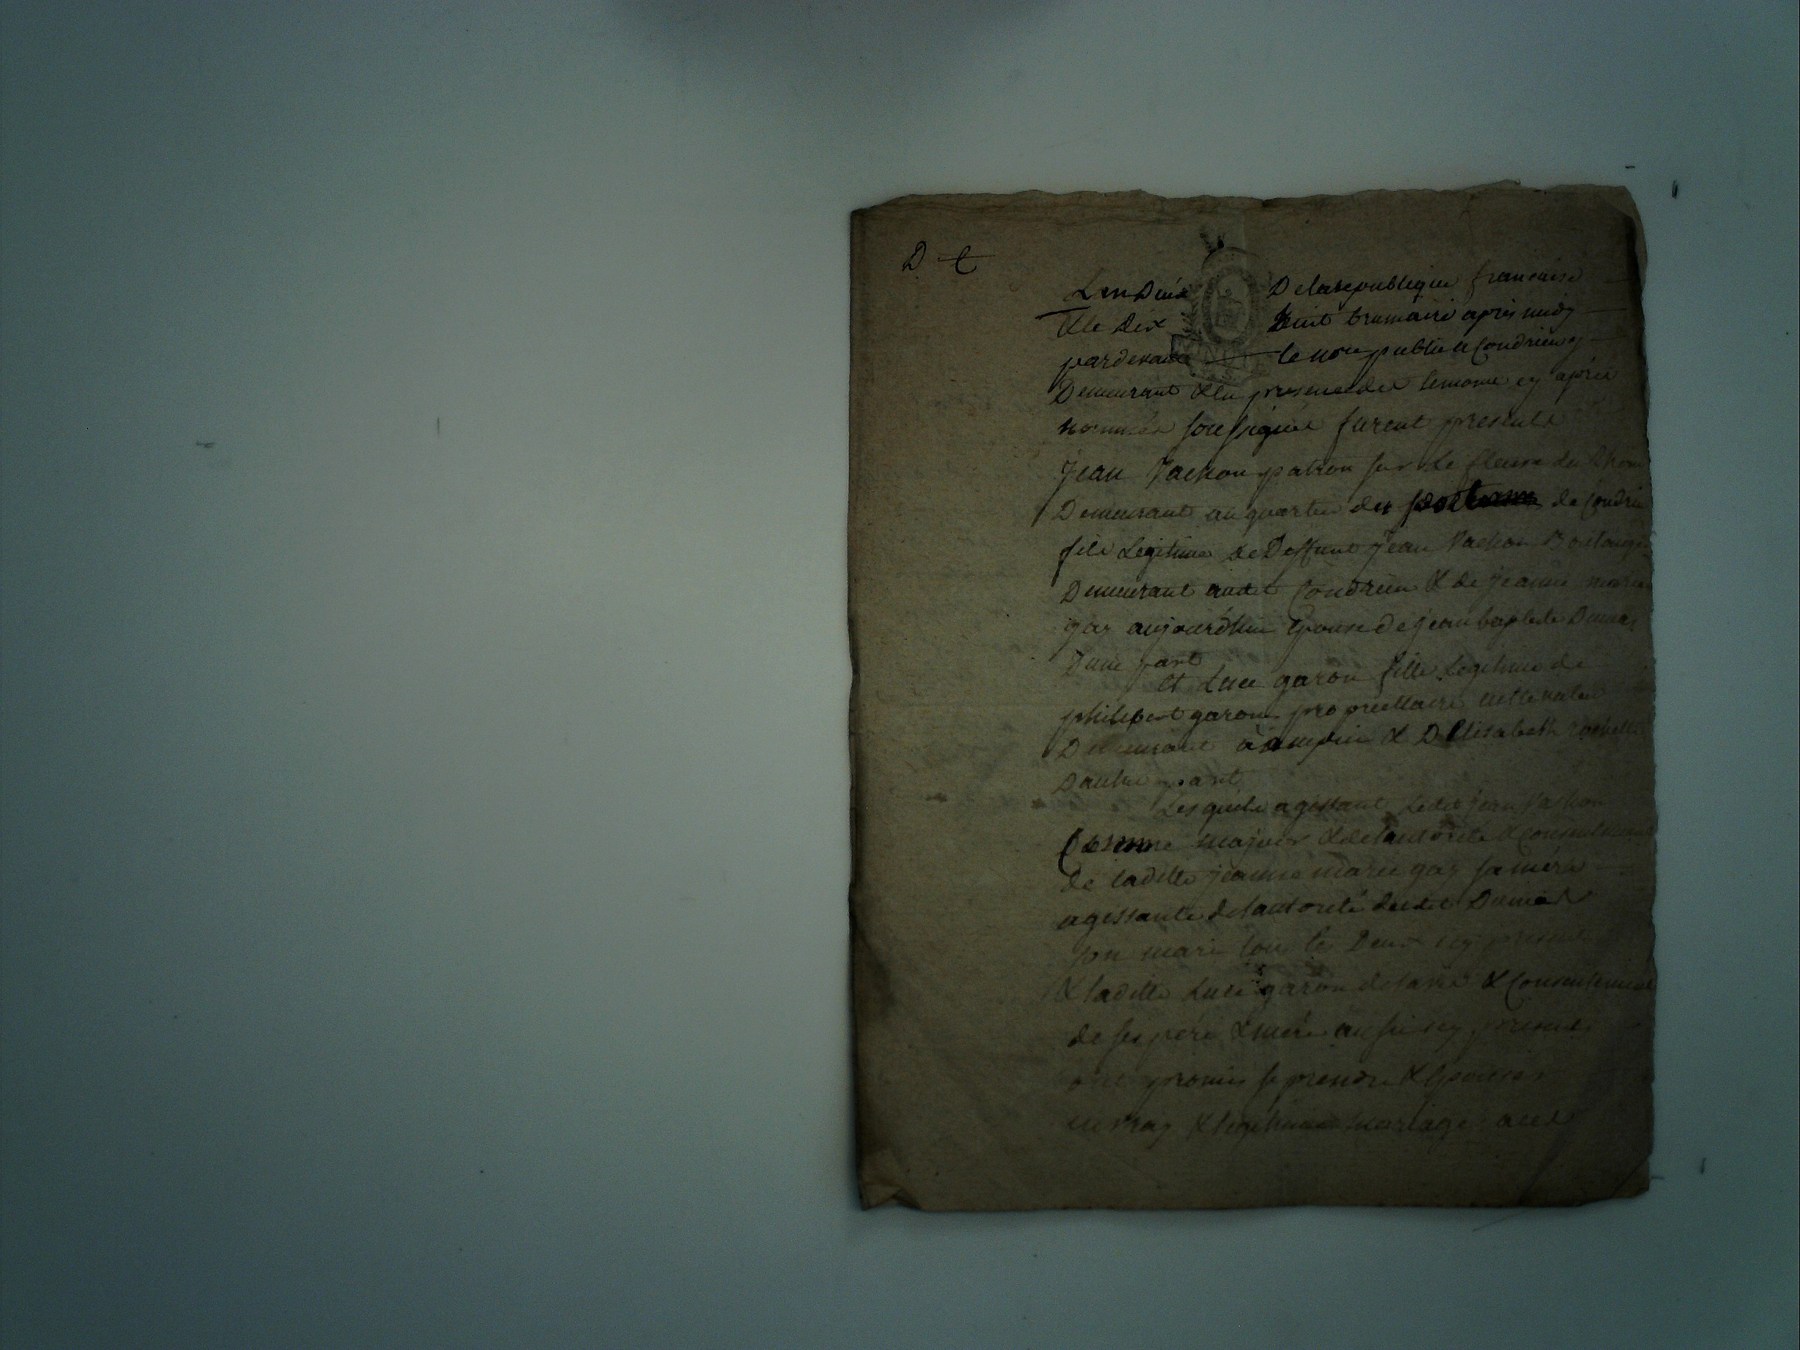 D t
L'an Dix De la republique francaise
& le dix huit brumaire apres midy
pardevant le no.re public a Condrieu y
Demeurant & en presence des temoins cy après
nommés soussignés furent presents
Jean Vachon patron sur le fleuve du Rhone
Demeurant au quartier du port de Condrieu
fils Legitime de Deffunt Jean Vachon Boulanger
Demeurant audit Condrieu & de jeanne marie
gas aujourd'hui Epouse de jean baptiste Dumas
D'une part
Et Luce garon fille Legitime de
philibert garon proprietaire
Demeurant à ampuis & D'Elisabeth
D'autre part
Lesquels agissant Ledit jean Vachon
Comme majeur & de l'autorité & Consentement
de ladite jeanne marie gas sa mere
agissante de l'autorité dudit Dumas
son mari tous les Deux icy presents
& ladite Luce garon de l'avis & Consentement
de ses père & mère aussi icy presents
ont promis se prendre & Epouser
en vray & legitime mariage